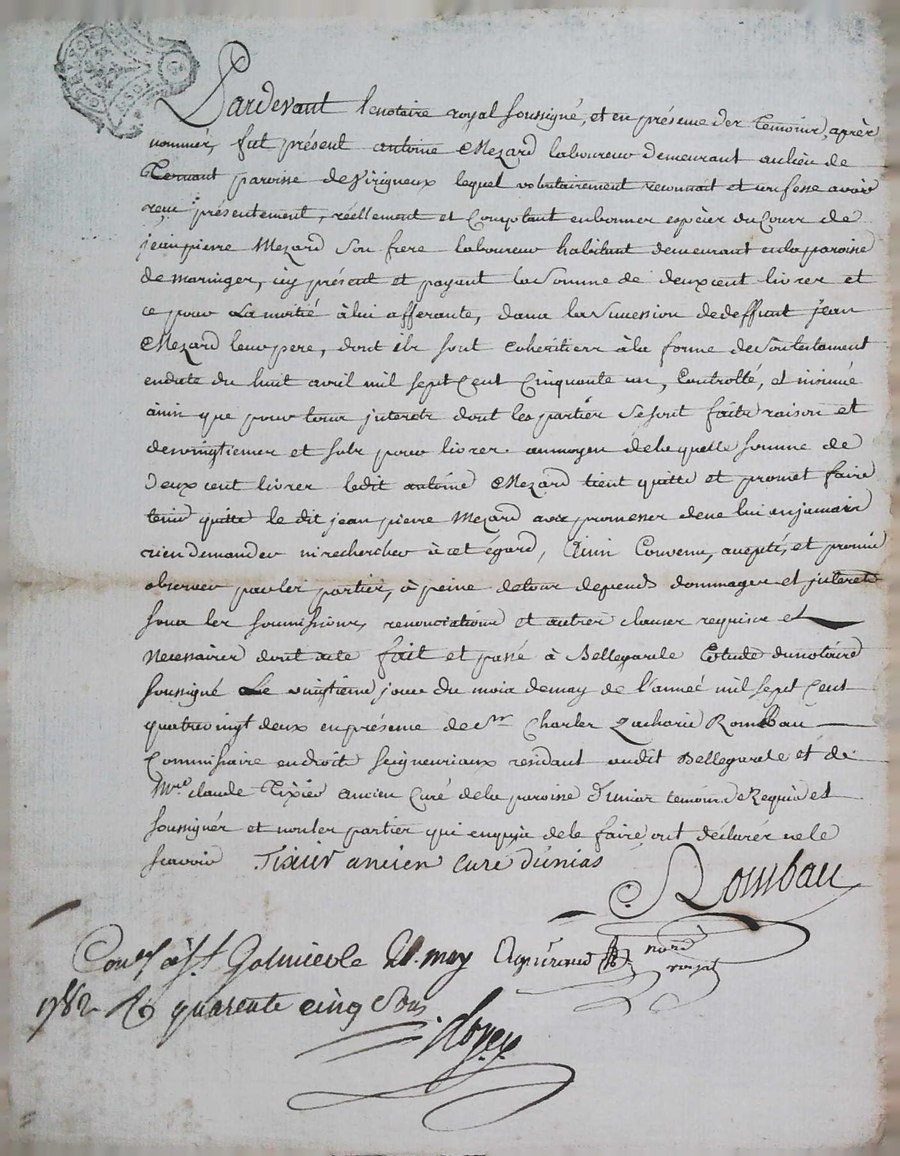 Pardevant le notaire royal soussigné, et en présence des temoins, après
nommés, fut présent antoine Mezard laboureur demeurant au lieu de
Ternant paroisse de Virigneux lequel volontairement reconnait et confesse avoir
reçu présentement, réellement et Comptant en bonnes espèces du Cours de
jean pierre Mezard Son frere laboureur habitant demeurant en la paroisse
de maringes, icy présent et payant la Somme de deux cent livres et
ce pour La moitié à lui afferante, dans la Succession de deffunt jean
Mezard leur pere, dont ils sont Coheritiers à la forme de Son testament
en date du huit avril mil sept Cent Cinquante un, Controllé, et insinué
ainsi que pour tous jnterets dont les parties Se sont faits raison et
de vingtiemes et sols pour livres. au moyen de la quelle somme de
deux cent livres ledit antoine Mezard tient quitte et promet faire
tenir quitte le dit jean pierre Mezard avec promesses de ne lui en jamais
rien demander ni rechercher à cet égard, Ainsi Convenu, accepté, et promis
observer par les parties, à peine de tous depends dommages et jnterets
sous les soumissions, renonciations et autres clauses requises et
Necessaires dont acte fait et passé à Bellegarde Etude du notaire
soussigné Le vingtieme jour du mois de may de l'année mil sept Cent
quatre vingt deux en présence de Sr Charles Zacharie Rombau
Commissaire en droits seigneuriaux rendant audit Bellegarde et de
Mre claude Tixier ancien Curé de la paroisse d'unias temoins Requis et
soussignés et non les parties qui enquis de le faire ont déclarés ne le
scavoir Tixier ancien curé d'unias
Rombau
nore
royal
à St Galmier le 21. may
1782 R quarente cinq Sous